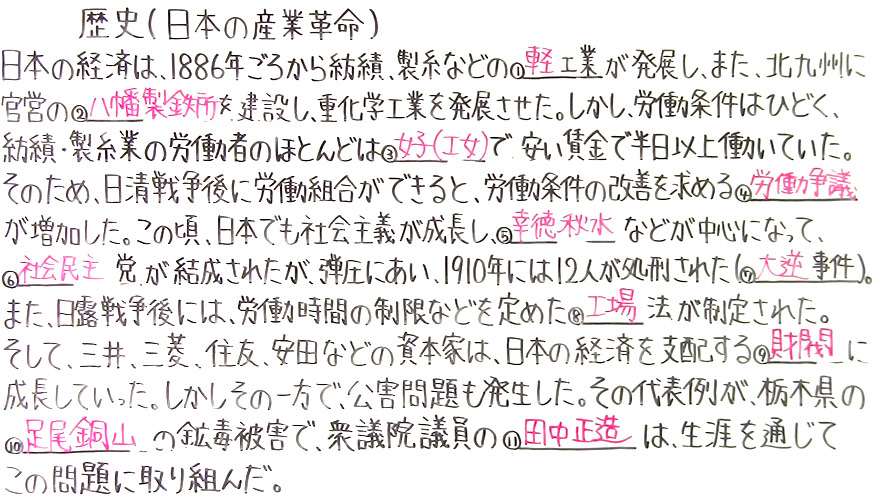 歴史(日本の産業革命)
日本の経済は、1886年ごろから紡績、製糸などの①軽工業が発展し、また、北九州に
官営の②八幡製鉄所を建設し、重化学工業を発展させた。しかし、労働条件はひどく、
紡績・製糸業の労働者のほとんどは③女子(工女)で、安い賃金で半日以上働いていた。
そのため、日清戦争後に労働組合ができると、労働条件の改善を求める④労働争議
が増加した。この頃、日本でも社会主義が成長し、⑤幸徳秋水などが中心になって、
⑥社会民主党が結成されたが、弾圧にあい、1910年には12人が処刑された(⑦大逆事件)。
また、日露戦争後には、労働時間の制限などを定めた⑧工場法が制定された。
そして、三井、三菱、住友、安田などの資本家は、日本の経済を支配する⑨財閥に
成長していった。しかしその一方で、公害問題も発生した。その代表例が、栃木県の
⑩足尾銅山の鉱毒被害で、衆議院議員の⑪田中正造は、生涯を通じて
この問題に取り組んだ。